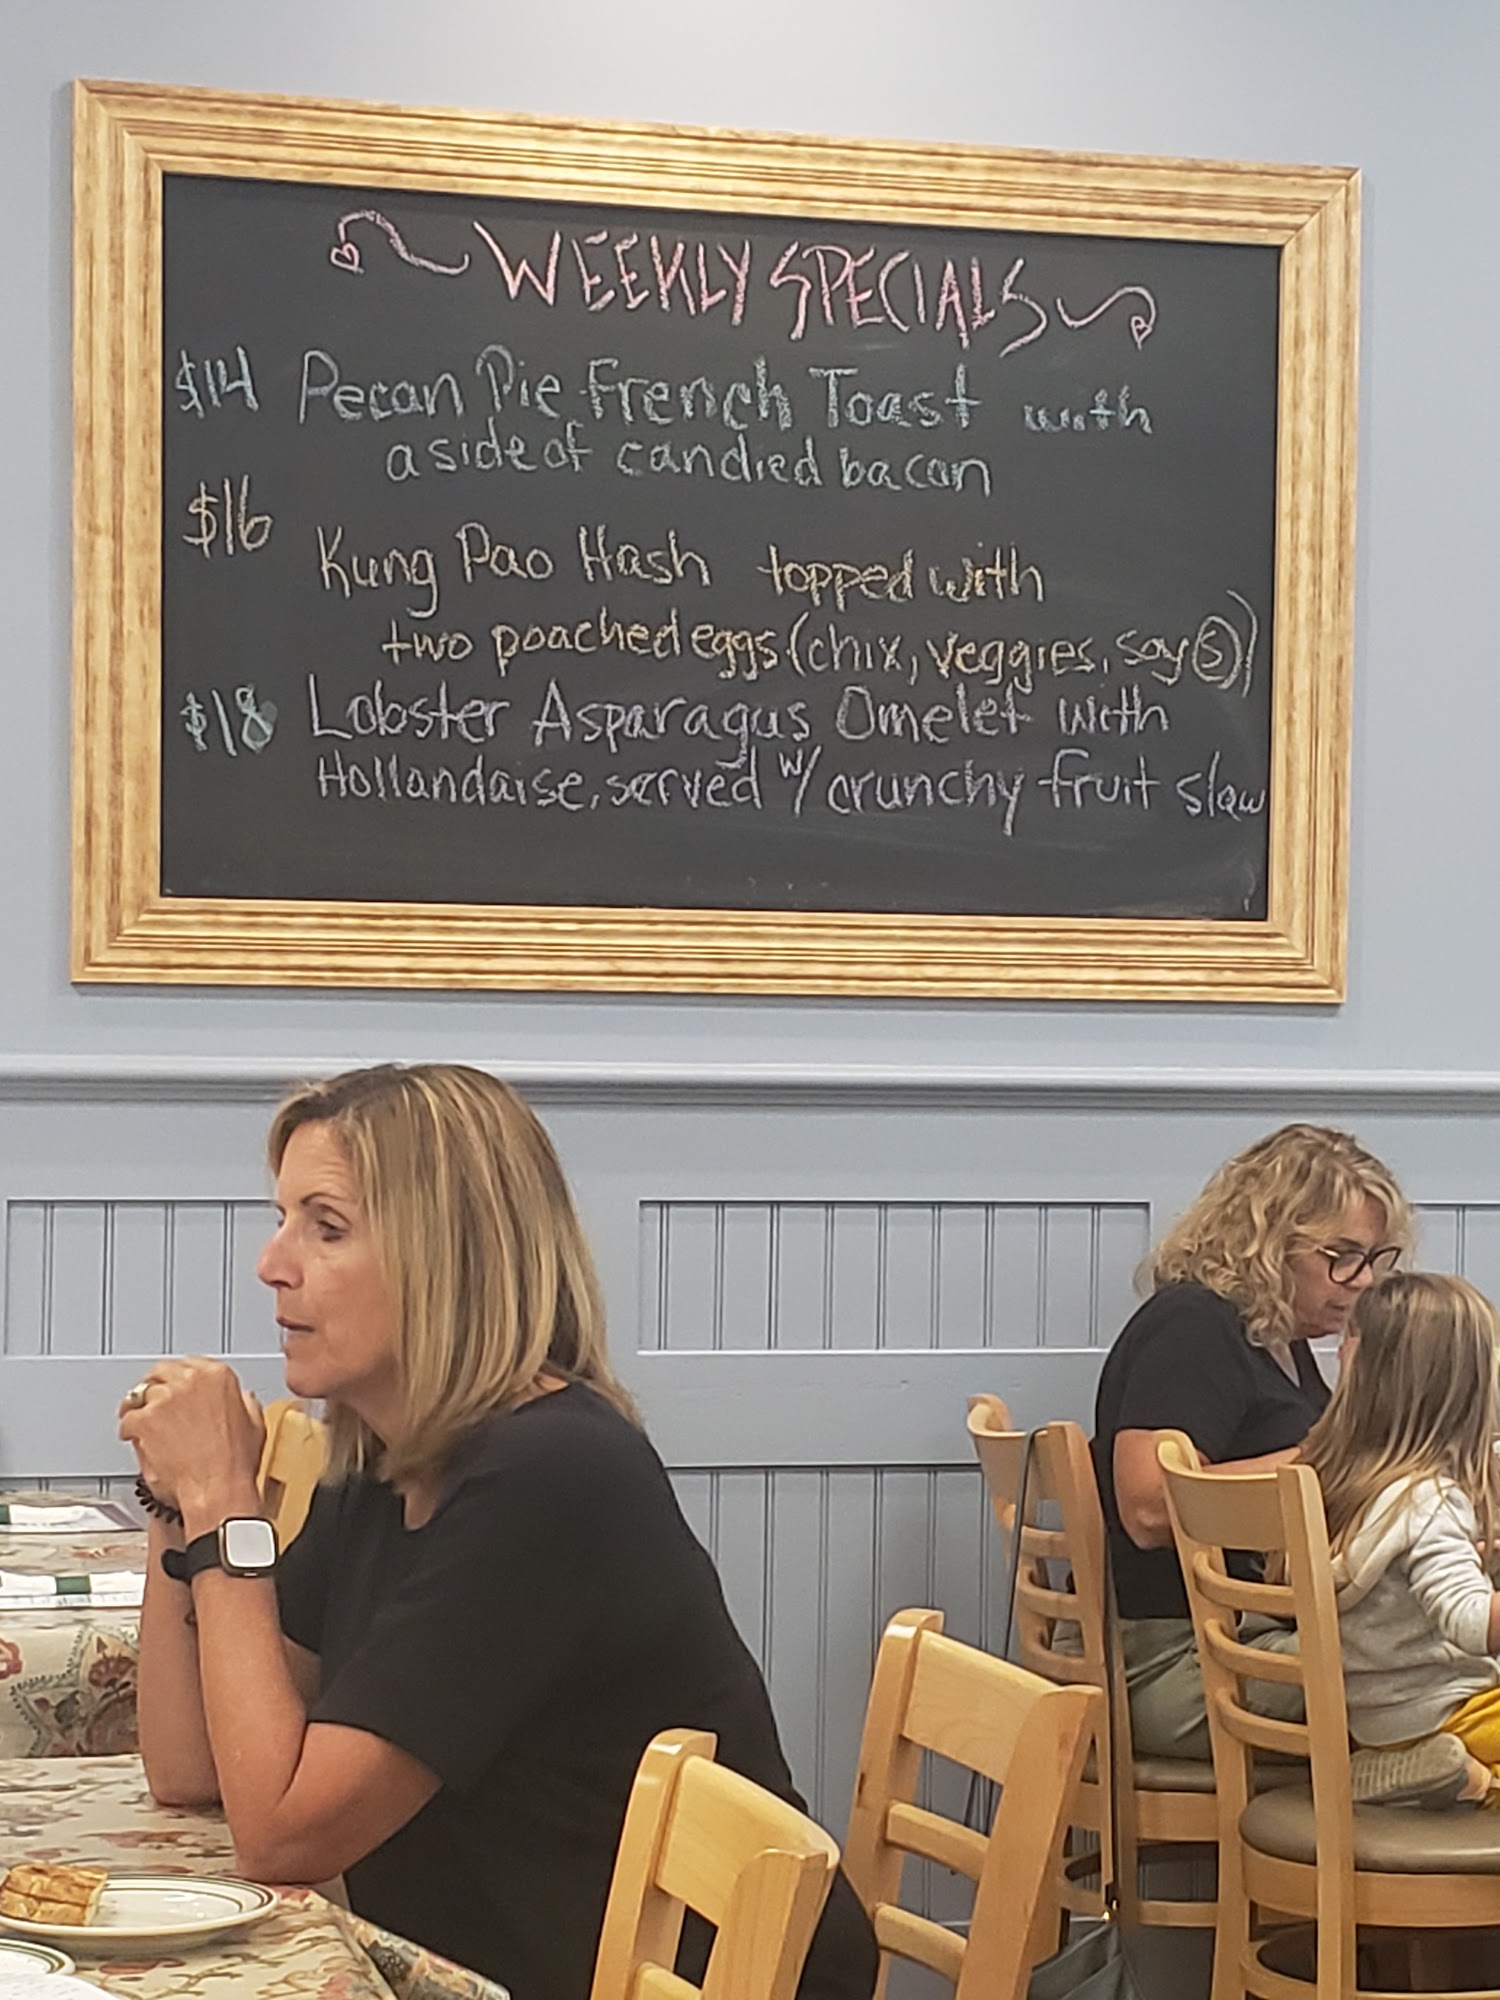 WEEKLY SPECIALS
$14 Pecan Pie French Toast with
a side of candied bacon
$16 Kung Pao Hash topped with
two poached eggs (chix, veggies, soy S)
$18 Lobster Asparagus Omelet with
Hollandaise, served w/ crunchy fruit slaw